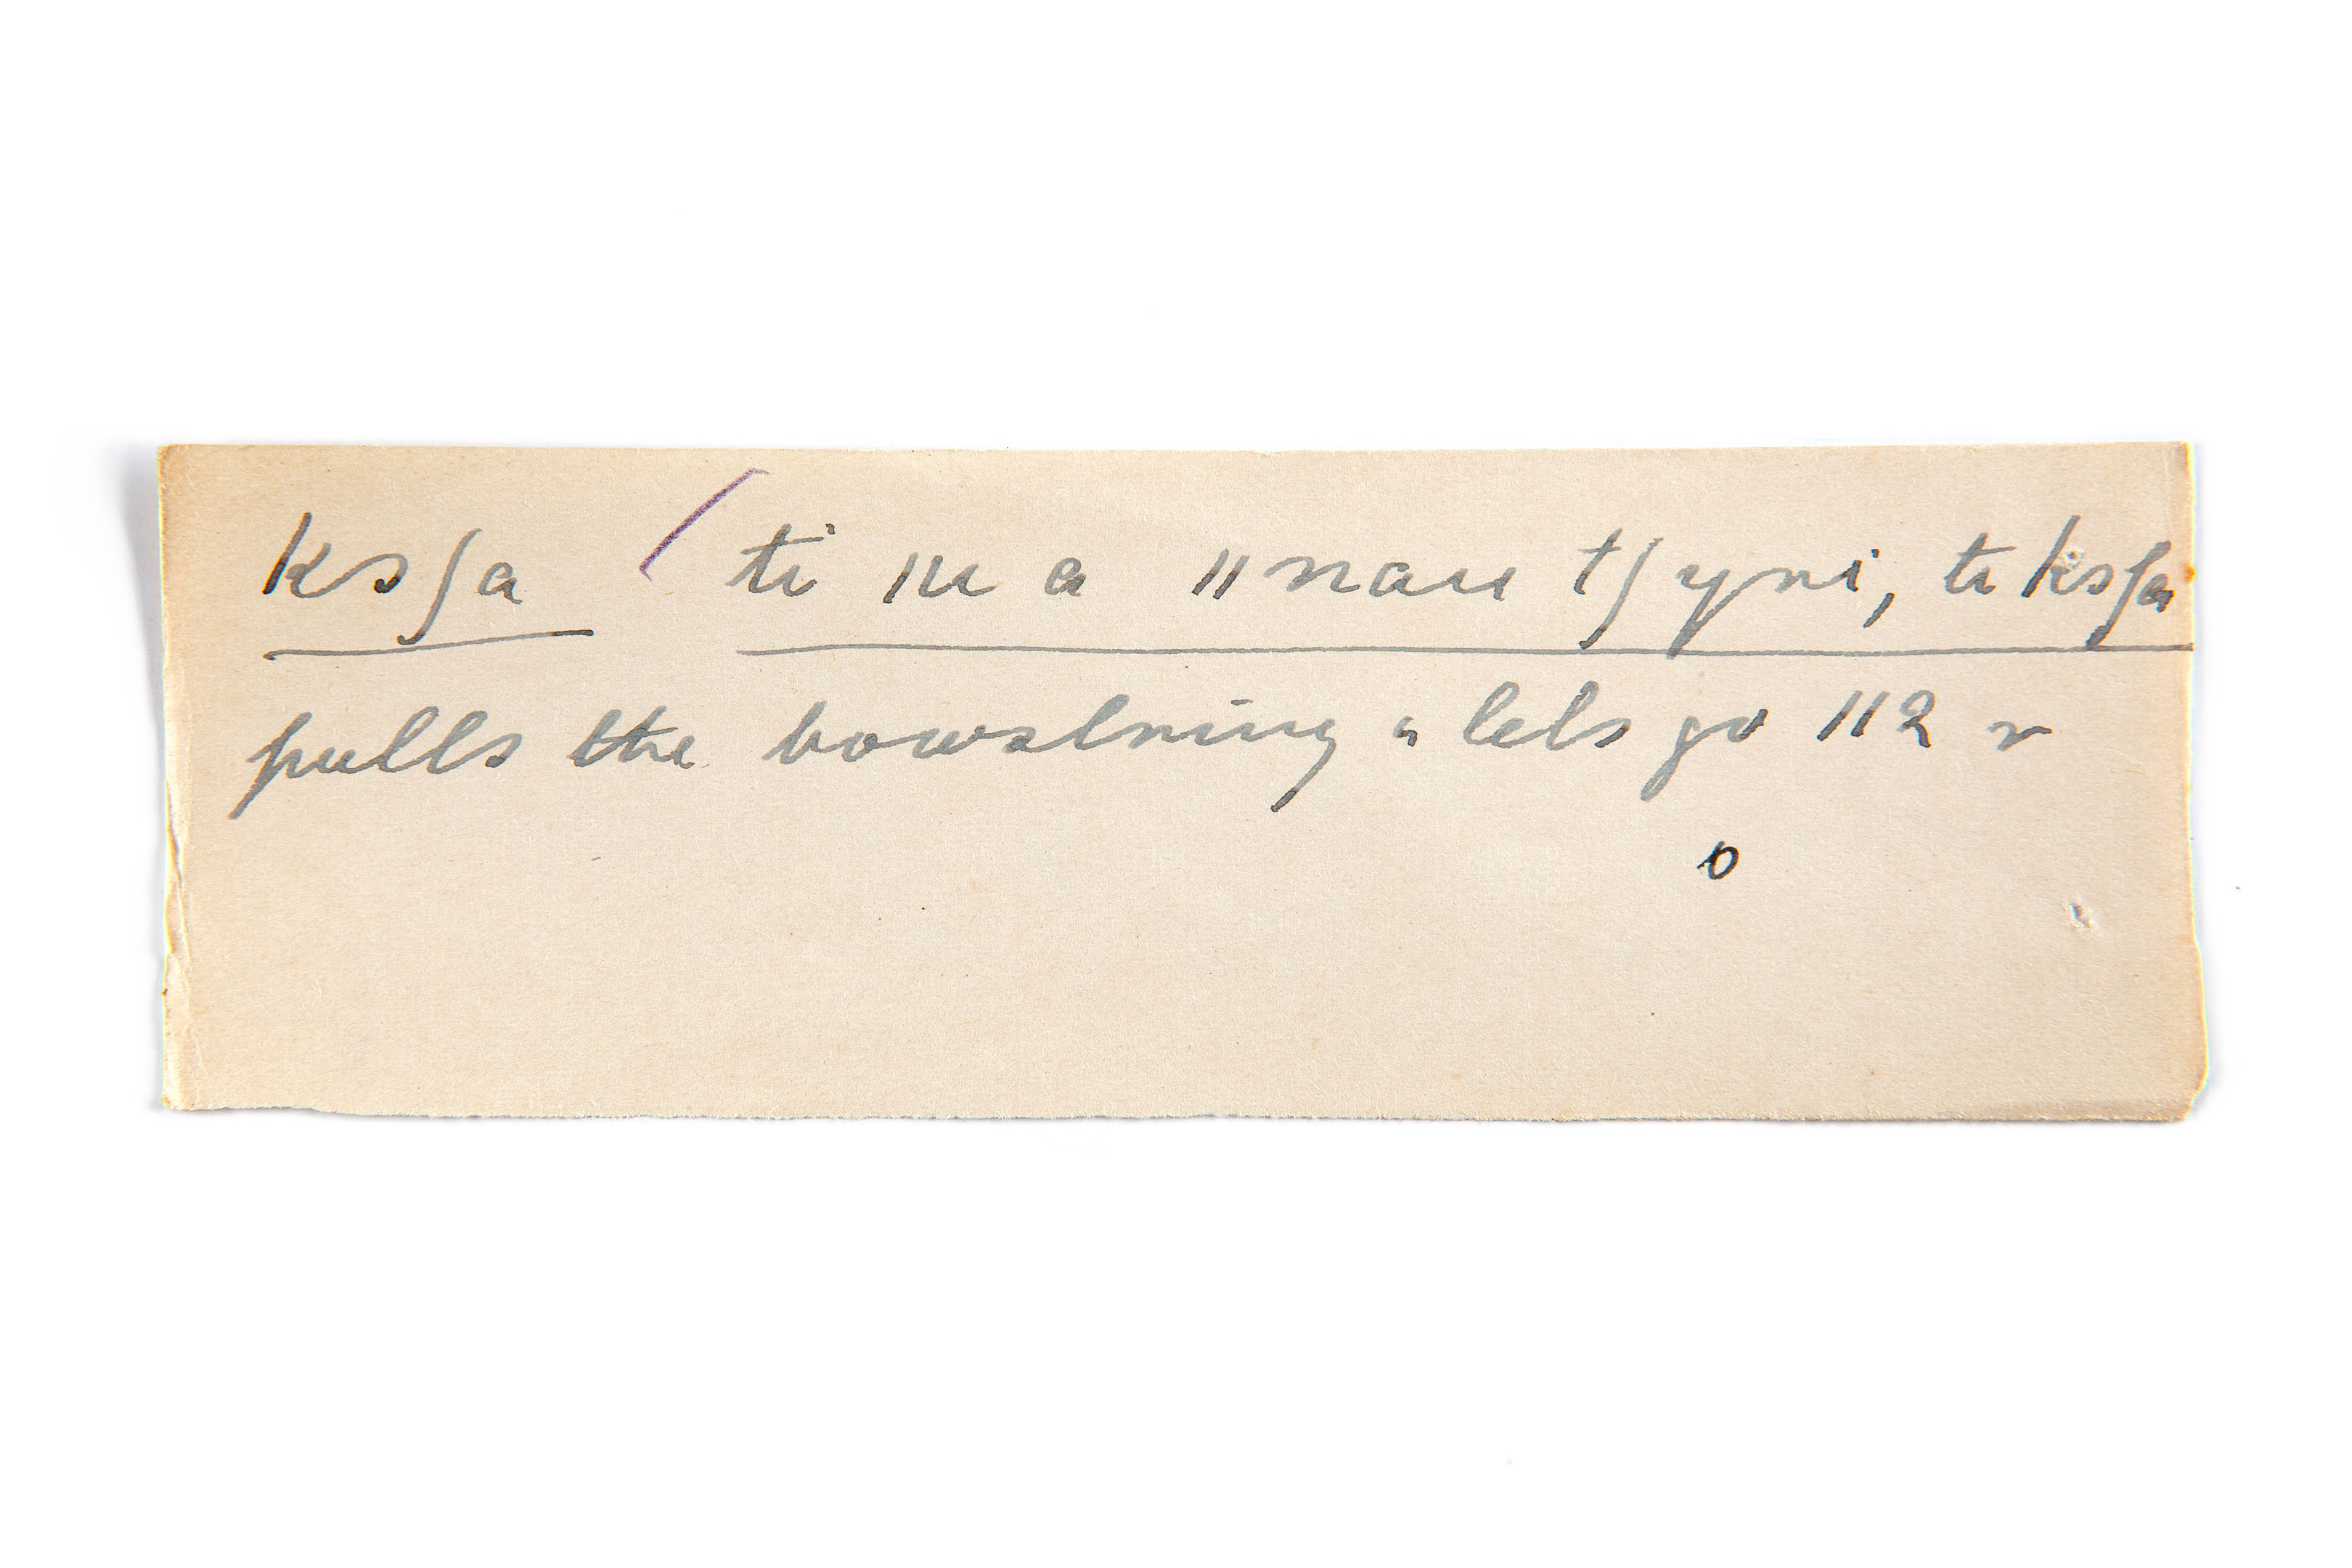 ksʃa ti ǀu a ǁnau tʃyni, ti ksʃa
pulls the bowstring & lets go 112 r
o